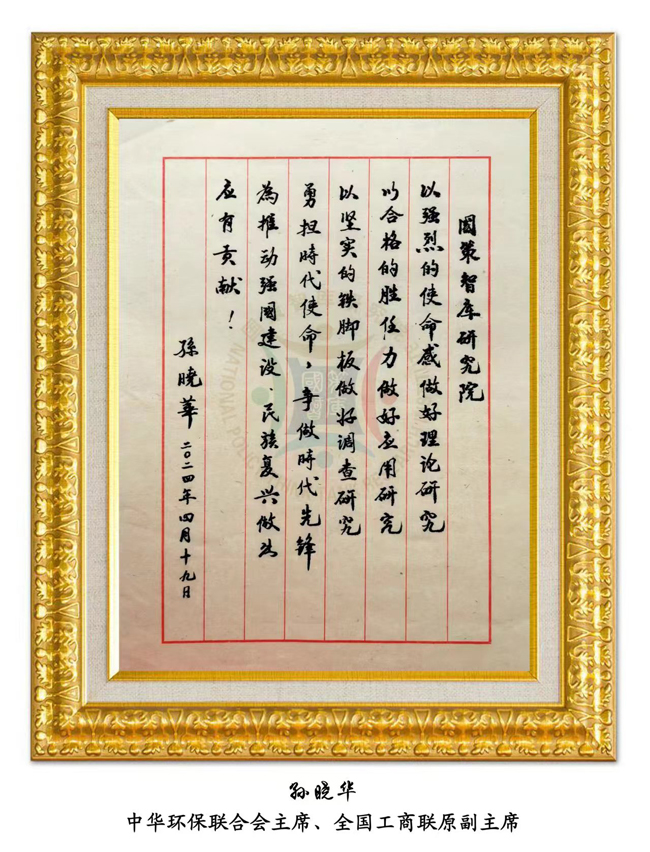 國策智库研究院
以强烈的使命感做好理论研究
以合格的胜任力做好应用研究
以坚实的铁脚板做好调查研究
勇担時代使命，争做時代先锋
為推动强國建设、民族复兴做出
应有贡献！
孫曉華 二〇二四年四月十九日
NATIONAL
孙晓华
中华环保联合会主席、全国工商联原副主席